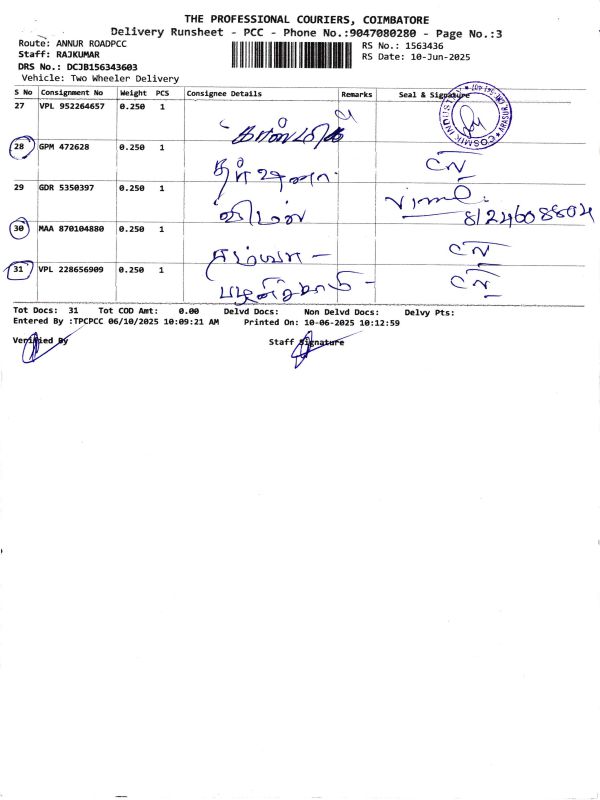 THE PROFESSIONAL COURIERS, COIMBATORE
Delivery Runsheet - PCC - Phone No.:9047080280 - Page No.:3
Route: ANNUR ROADPCC
RS No.: 1563436
Staff: RAJKUMAR
RS Date: 10-Jun-2025
DRS No.: DCJB156343603
Vehicle: Two Wheeler Delivery
S No Consignment No Weight PCS Consignee Details Remarks Seal & Signature
27 VPL 952264657 0.250 1
28 GPM 472628 0.250 1
29 GDR 5350397 0.250 1
8124608804
30 MAA 870104880 0.250 1
31 VPL 228656909 0.250 1
Tot Docs: 31 Tot COD Amt: 0.00 Delvd Docs: Non Delvd Docs: Delvy Pts:
Entered By :TPCPCC 06/10/2025 10:09:21 AM Printed On: 10-06-2025 10:12:59
Verified By Staff Signature